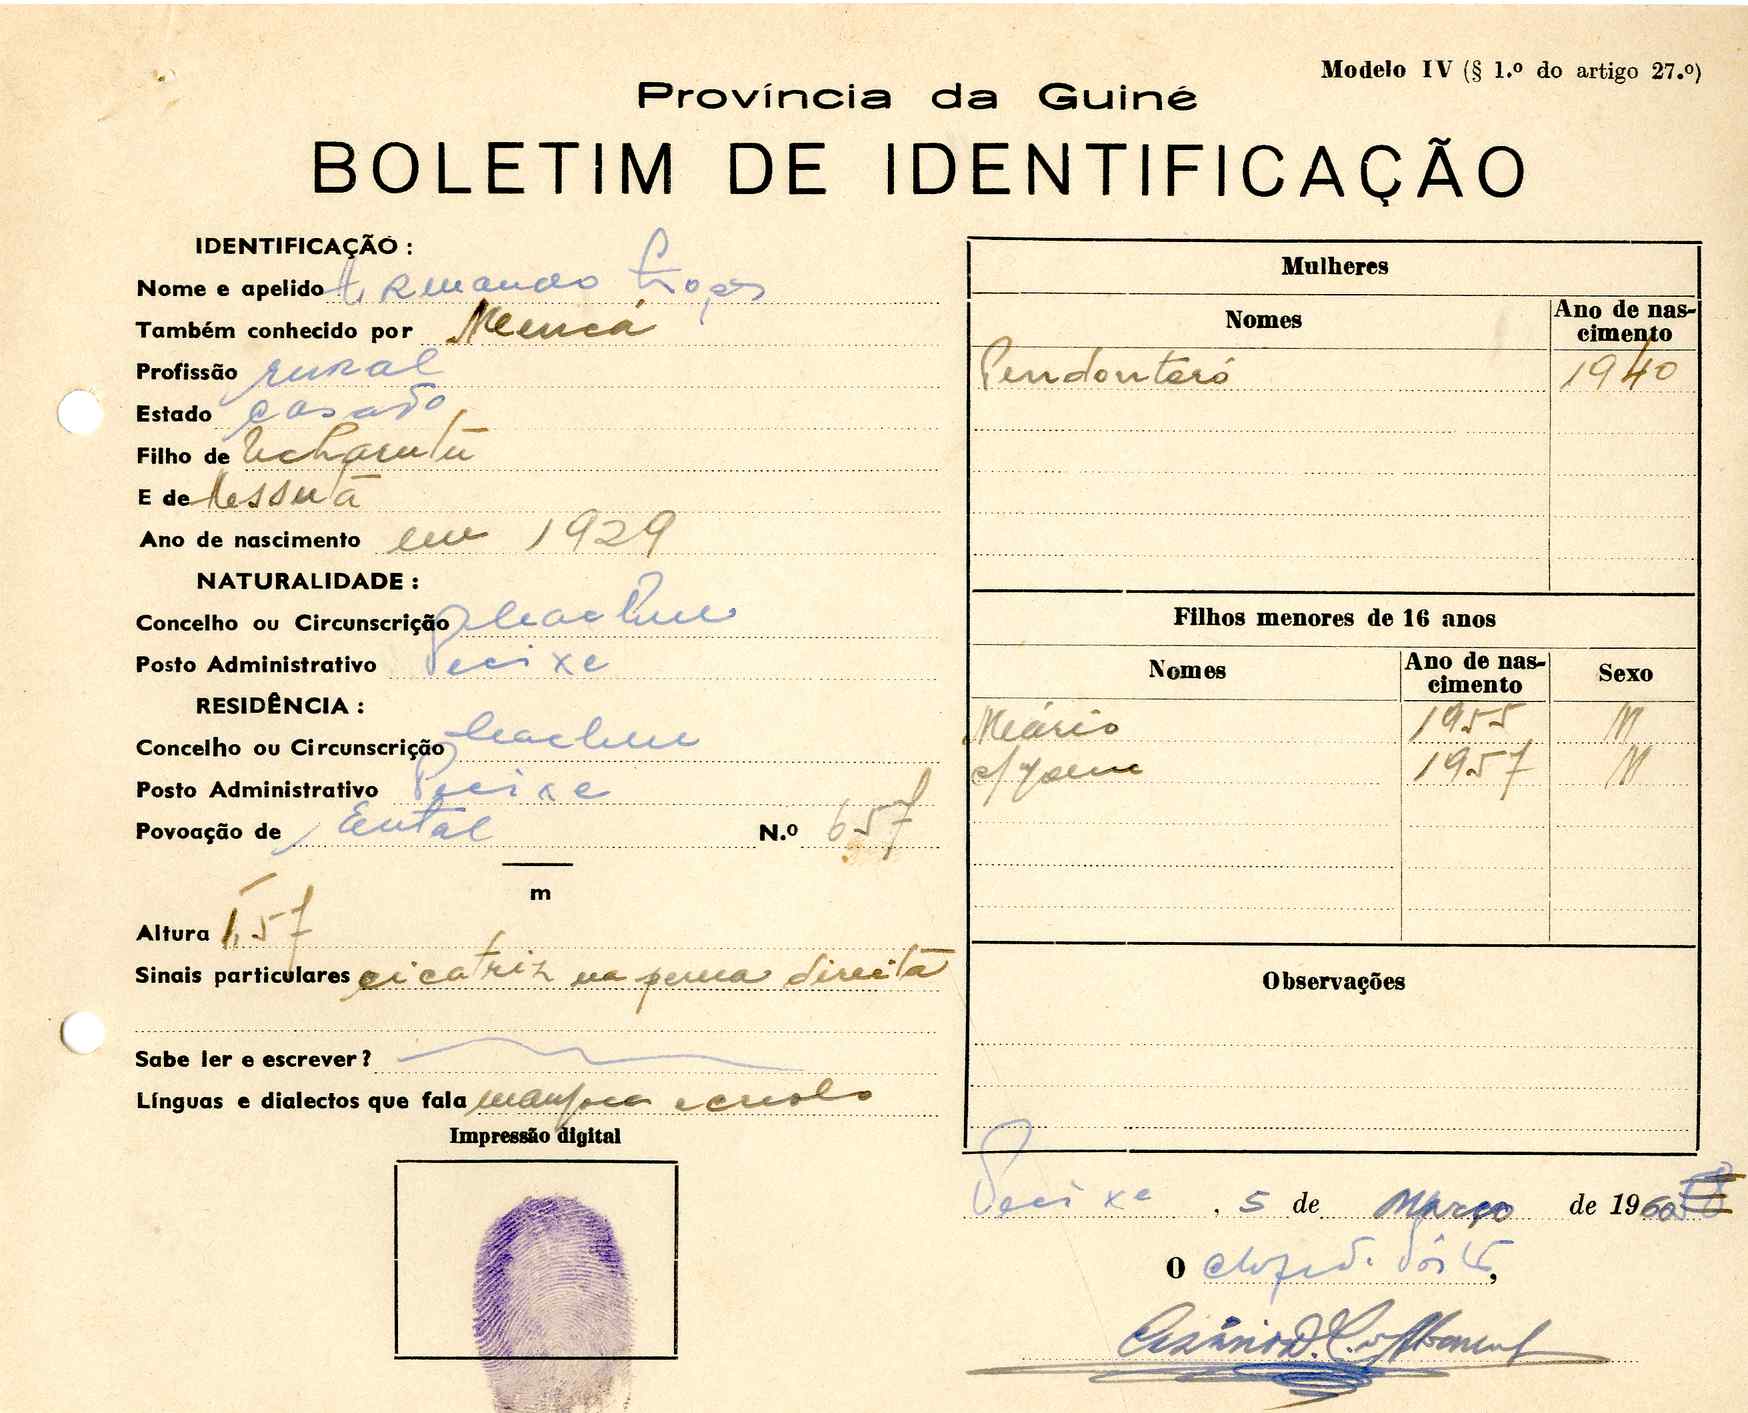 Modelo IV (§ 1.º do artigo 27.º)
Província da Guiné
BOLETIM DE IDENTIFICAÇÃO
IDENTIFICAÇÃO :
Nome e apelido Armando
Também conhecido por
Profissão rural
Estado casado
Filho de
E de
Ano de nascimento em 1929
NATURALIDADE :
Concelho ou Circunscrição
Posto Administrativo Pecixe
RESIDÊNCIA :
Concelho ou Circunscrição
Posto Administrativo Pecixe
Povoação de N.º 657
m
Altura 1,57
Sinais particulares cicatriz na perna direita
Sabe ler e escrever?
Línguas e dialectos que fala e creolo
Impressão digital
Mulheres
Nomes Ano de nas-
cimento
1940
Filhos menores de 16 anos
Nomes Ano de nas-
cimento Sexo
Mário 1955 M
1957 M
Observações
Pecixe, 5 de Março de 1960
O chefe do Pôsto,